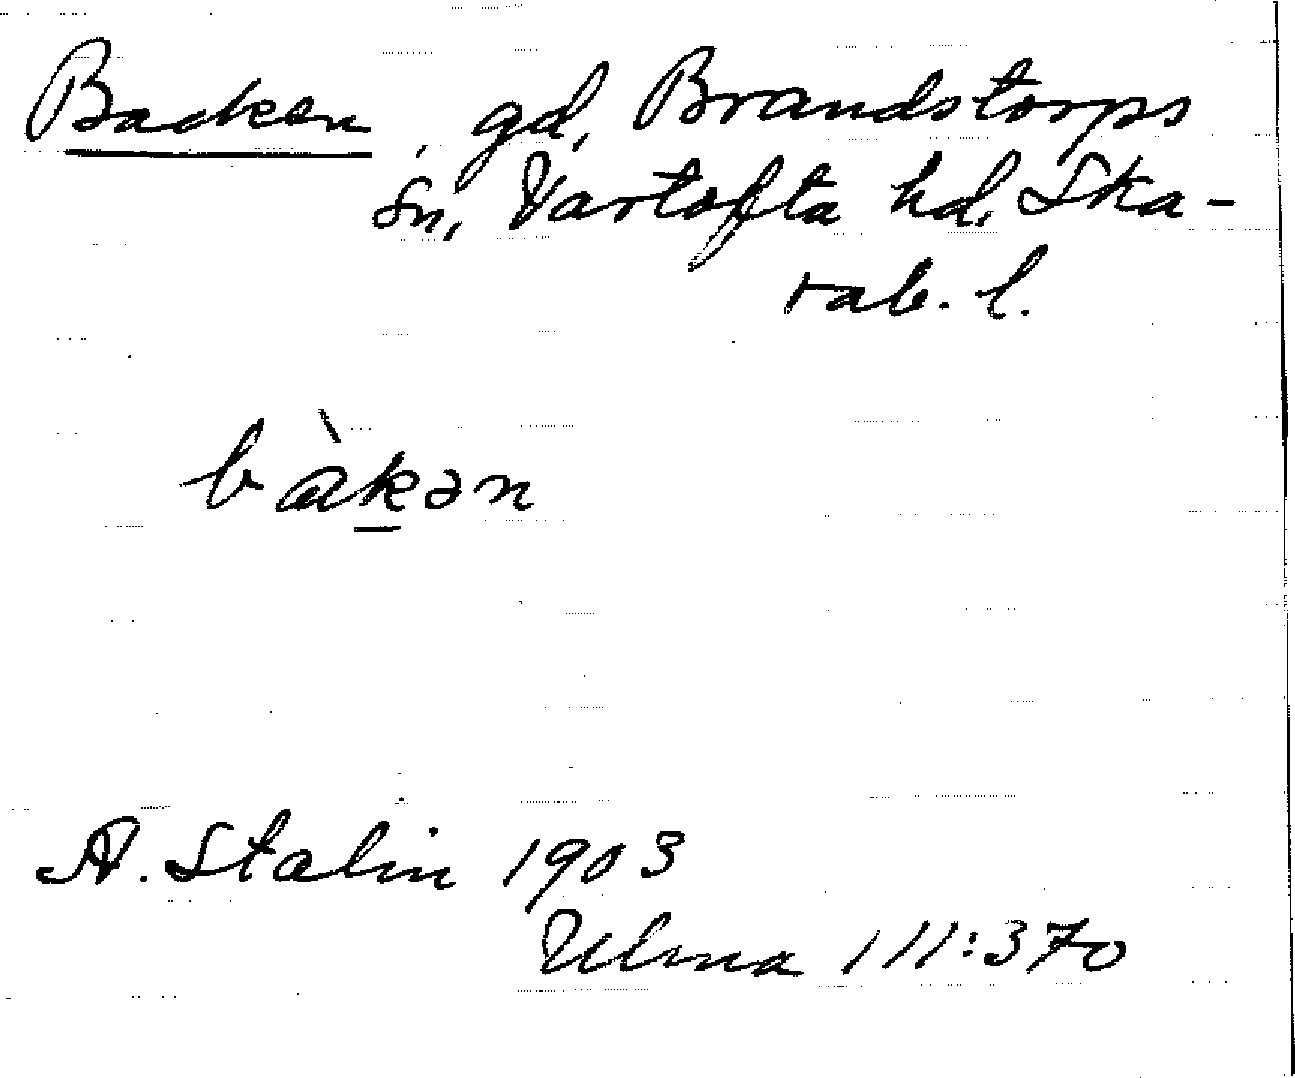 Backen, gd, Brandstorps
sn, Vartofta hd, Ska-
rab. l.
bàkən
A. Stalin 1903
Ulma 111:370